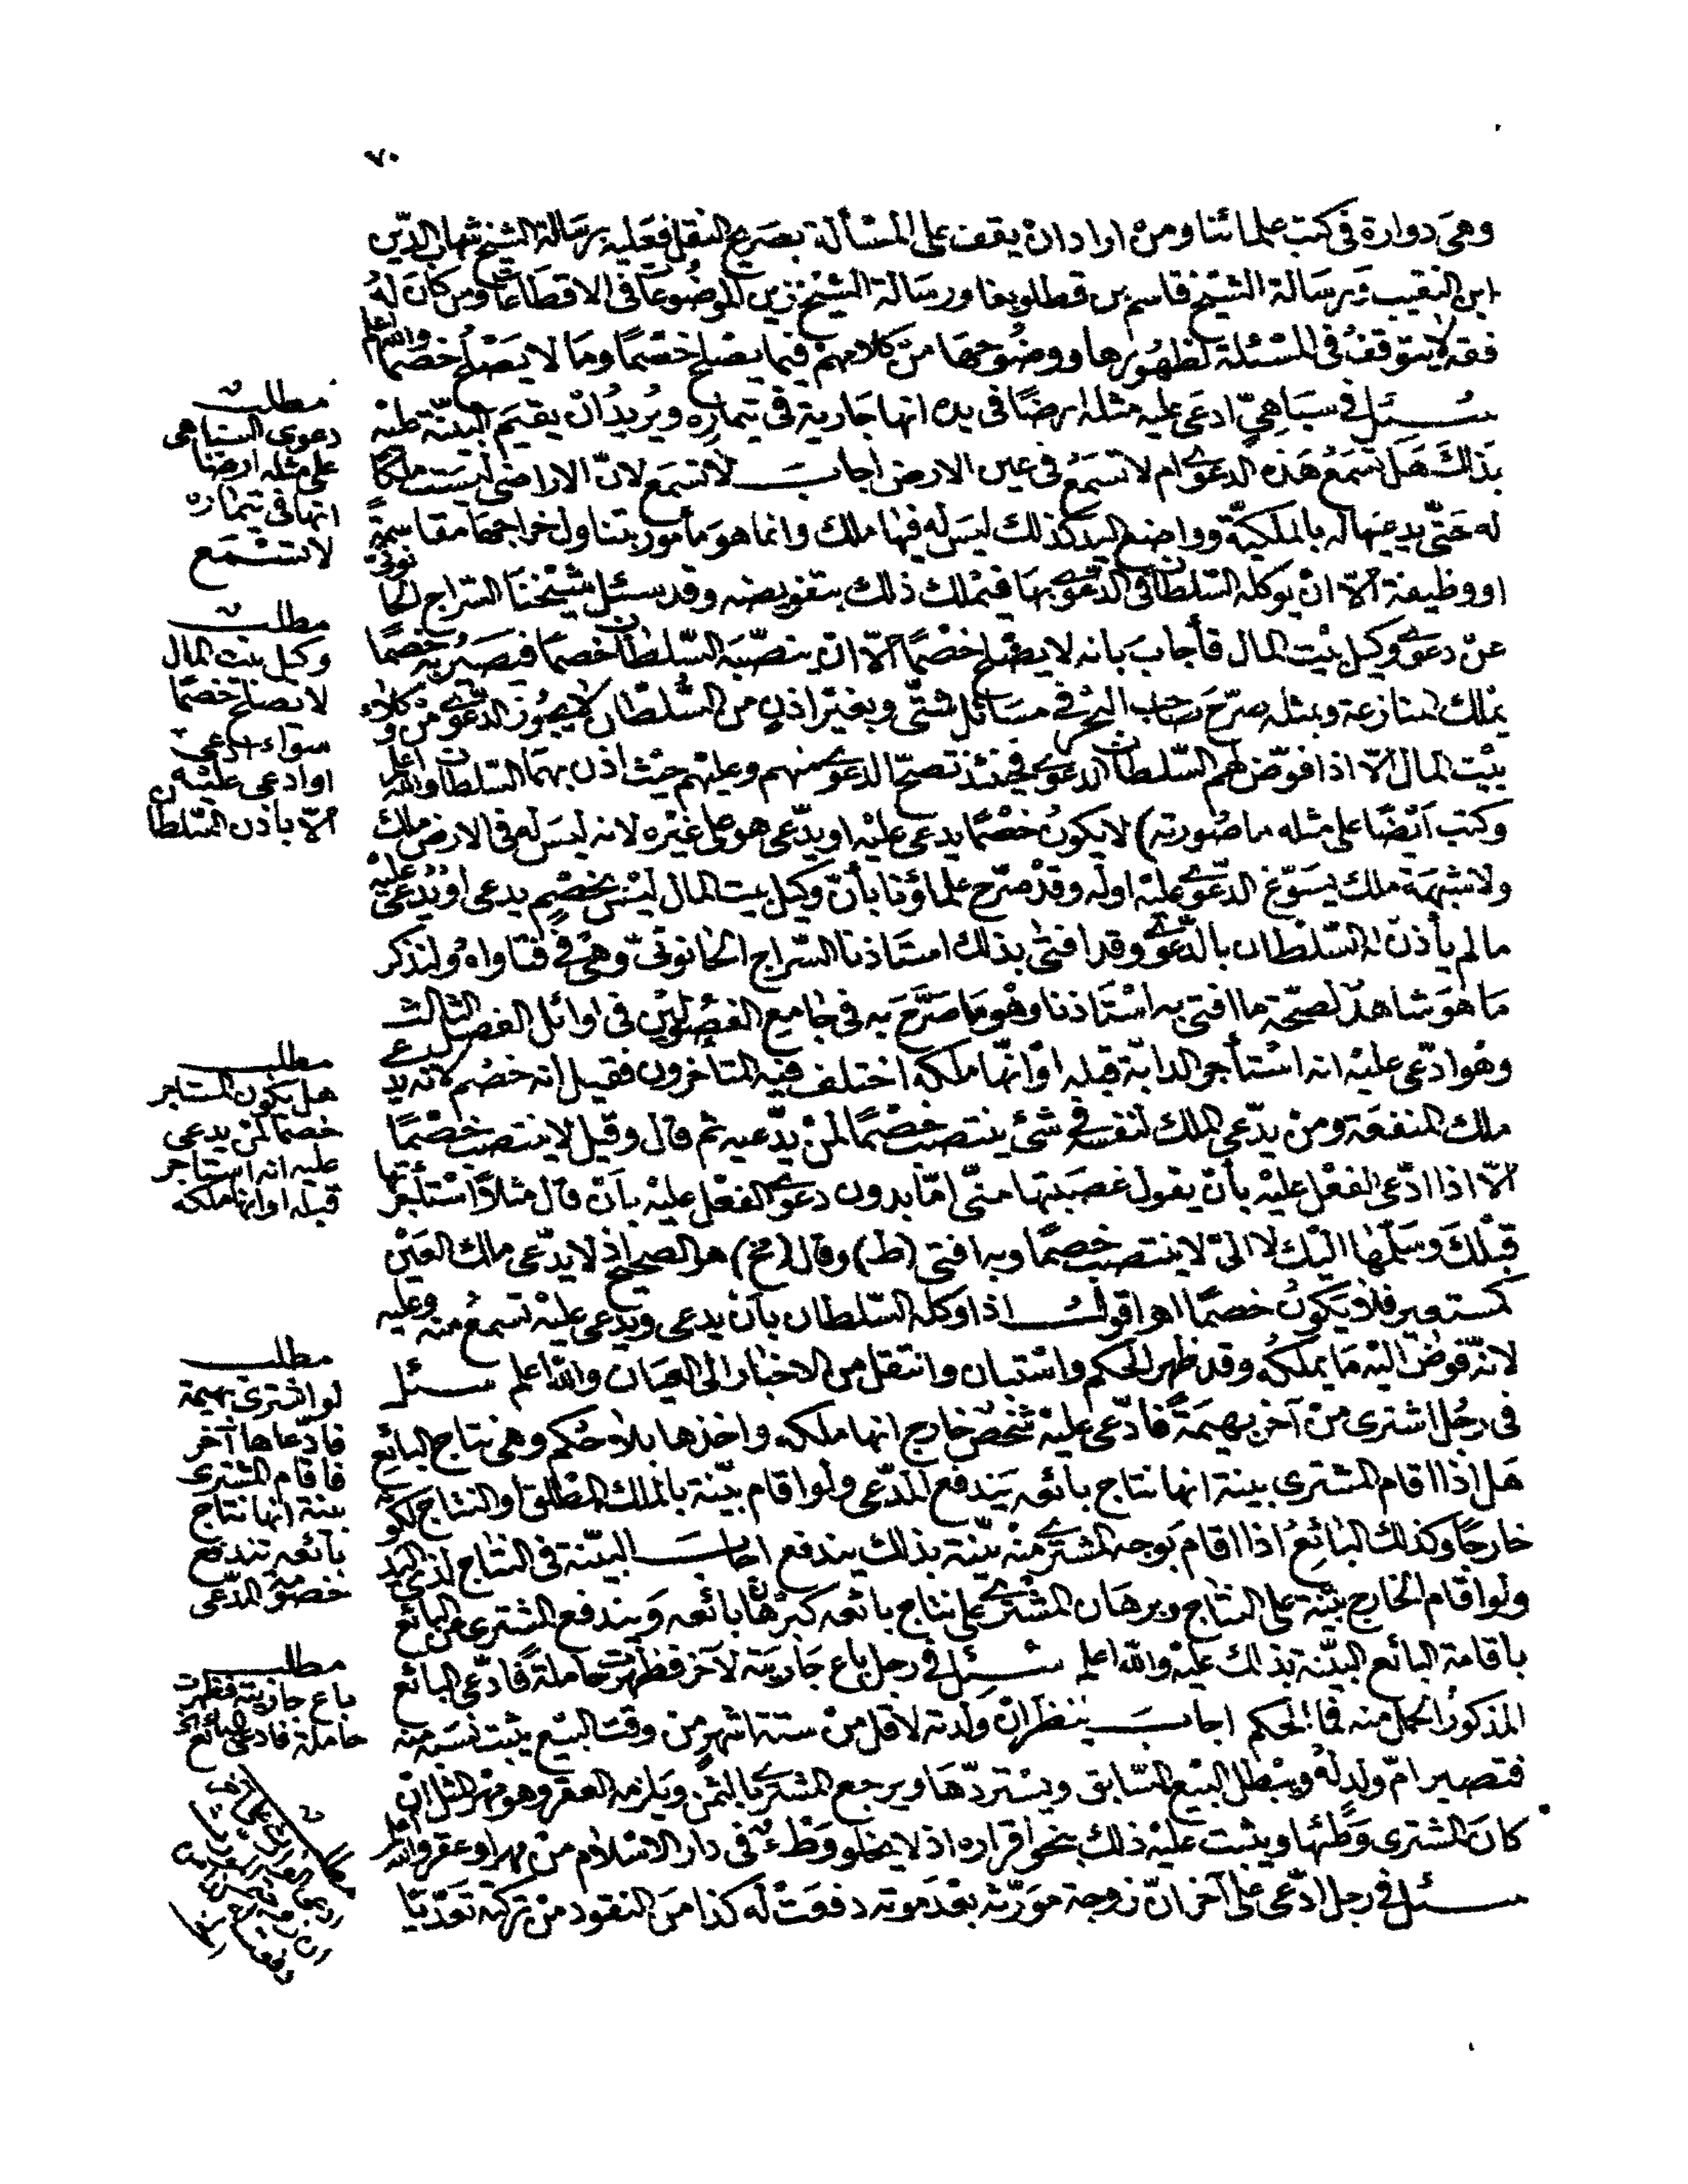 ٧٠
وهي دوارة في كتب علمائنا ومن اراد ان يقف على المسألة بصريح النقل فعليه برسالة الشيخ شهاب الدين
ابن النقيب وبرسالة الشيخ قاسم بن قطلوبغا ورسالة الشيخ زين الموضوعا في الاقطاعات ومن كان له
فقه لا يتوقف في المسئلة لظهورها ووضوحها من كلامهم فيما يصلح خصما وما لا يصلح خصما والله اعلم
سئل في سباهي ادعى عليه مثله ارضا في يده انها جارية في تيماره ويريد ان يقيم البينة عليه
بذلك هل تسمع هذه الدعوى ام لا تسمع في عين الارض اجاب لا تسمع لان الاراضي ليست ملكا
له حتى يدعيها له بالملكية وواضع اليد كذلك ليس له فيها ملك وانما هو مأمور بتناول خراجها مقاسمة
او وظيفة الا ان يوكله السلطان في الدعوى بها فيملك ذلك بتفويضه وقد سئل شيخنا السراج الحانوتي
عن دعوى وكيل بيت المال فأجاب بانه لا يصلح خصما الا ان ينصبه السلطان خصما فيصير به خصما
يملك المنازعة وبمثله صرح صاحب البحر في مسائل شتى وبغير اذن من السلطان لا يجوز الدعوى من وكلاء
بيت المال الا اذا فوض لهم السلطان الدعوى فحينئذ تصح الدعوى منهم وعليهم حيث اذن بهما السلطان والله اعلم
وكتب ايضا على مثله ما صورته) لا يكون خصما يدعى عليه او يدعي هو على غيره لانه ليس له في الارض ملك
ولا شبهة ملك يسوغ الدعوى عليه اوله وقد صرح علماؤنا بأن وكيل بيت المال ليس بخصم يدعي او يدعى عليه
ما لم يأذن له السلطان بالدعوى وقد افتى بذلك استاذنا السراج الحانوتي وهي في فتاواه ولنذكر
ما هو شاهد لصحة ما افتى به استاذنا وهو ما صرح به في جامع الفصولين في اوائل الفصل الثالث
وهو ادعى عليه انه استأجر الدابة قبله او انها ملكه اختلف فيه المتاخرون فقيل انه خصم لانه يدعي
ملك المنفعة ومن يدعي الملك لنفسه في شئ ينتصب خصما لمن يدعيه ثم قال وقيل لا ينتصب خصما
الا اذا ادعى الفعل عليه بأن يقول غصبتها مني اما بدون دعوى الفعل عليه بأن قال مثلا استأجرتها
قبلك وسلمها اليك لا الي لا ينتصب خصما وبه افتى (ط) وقال (مخ) هو الصحيح اذ لا يدعي ملك العين
كمستعير فلا يكون خصما اهـ اقول اذا وكله السلطان بأن يدعي ويدعى عليه تسمع منه وعليه
لانه فوض اليه ما يملكه وقد ظهر الحكم واستبان وانتقل من الاخبار الى العيان والله اعلم سئل
في رجل اشترى من آخر بهيمة فادعى عليه شخص خارج انها ملكه واخذها بلا حكم وهي نتاج البائع
هل اذا اقام المشتري بينة انها نتاج بائعه يندفع المدعي ولو اقام بينة بالملك المطلق او النتاج لكونه
خارجا وكذلك البائع اذا اقام بوجه المشتري منه بينة بذلك يندفع اجاب البينة في النتاج لذي اليد
ولو اقام الخارج بينة على النتاج وبرهان المشتري على نتاج بائعه كبرهان بائعه ويندفع المشتري عن البائع
باقامة البائع البينة بذلك عليه والله اعلم سئل في رجل باع جاريته لآخر فظهرت حاملة فادعى البائع
المذكور الحمل منه فما الحكم اجاب ينظر ان ولدته لاقل من ستة اشهر من وقت البيع يثبت نسبه منه
فتصير ام ولد له ويبطل البيع السابق ويستردها ويرجع المشتري بالثمن ويلزمه العقر وهو مهر المثل ان
كان المشتري وطئها ويثبت عليه ذلك بنحو اقراره اذ لا يخلو وطء في دار الاسلام من مهر او عقر والله اعلم
سئل في رجل ادعى على آخر ان زوجة مورثه بعد موته دفعت له كذا من النقود من تركته تعديا
مطلب
دعوى السباهي
على مثله ارضا
انها في تيماره
لا تسمع
مطلب
وكيل بيت المال
لا يصلح خصما
سواء ادعى
او ادعى عليه
الا باذن السلطان
مطلب
هل يكون المستاجر
خصما لمن يدعي
عليه انه استاجر
قبله او انها ملكه
مطلب
لو اشترى بهيمة
فادعاها آخر
فاقام المشتري
بينة انها نتاج
بائعه تندفع
خصومة المدعي
مطلب
باع جاريته فظهرت
حاملة فادعى البائع